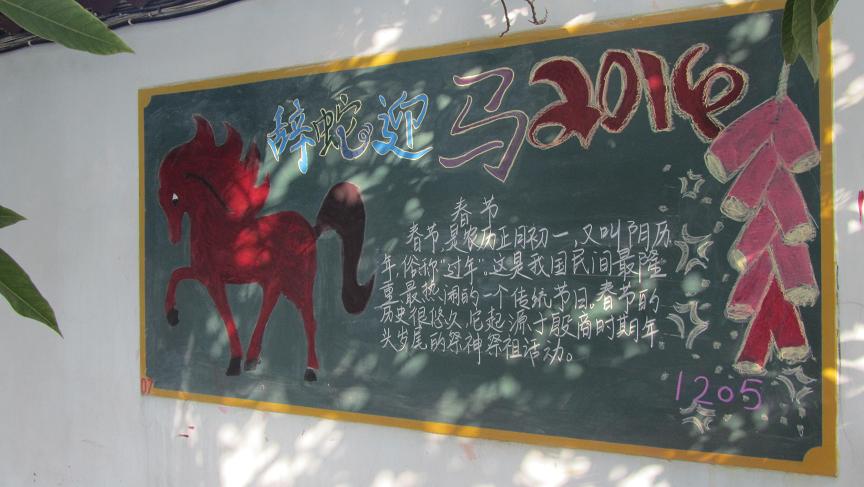 辞蛇迎马2014
春节
春节是农历正月初一,又叫阴历
年,俗称“过年”。这是我国民间最隆
重最热闹的一个传统节日。春节的
历史很悠久,它起源于殷商时期年
头岁尾的祭神祭祖活动。
1205
07